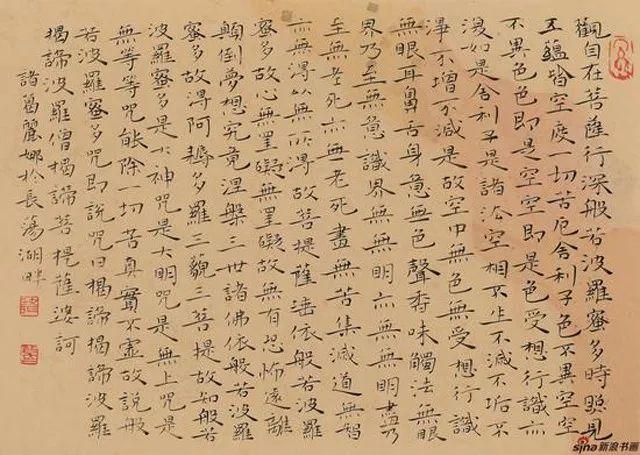 觀自在菩薩行深般若波羅蜜多時照見
五蘊皆空度一切苦厄舍利子色不異空空
不異色色即是空空即是色受想行識亦
復如是舍利子是諸法空相不生不滅不垢不
淨不增不減是故空中無色無受想行識
無眼耳鼻舌身意無色聲香味觸法無眼
界乃至無意識界無無明亦無無明盡乃
至無老死亦無老死盡無苦集滅道無智
亦無得以無所得故菩提薩埵依般若波羅
蜜多故心無罣礙無罣礙故無有恐怖遠離
顛倒夢想究竟涅槃三世諸佛依般若波羅
蜜多故得阿耨多羅三藐三菩提故知般若
波羅蜜多是大神咒是大明咒是無上咒是
無等等咒能除一切苦真實不虛故說般
若波羅蜜多咒即說咒曰揭諦揭諦波羅
揭諦波羅僧揭諦菩提薩婆訶
諸葛麗娜於長蕩湖畔
sina新浪书画